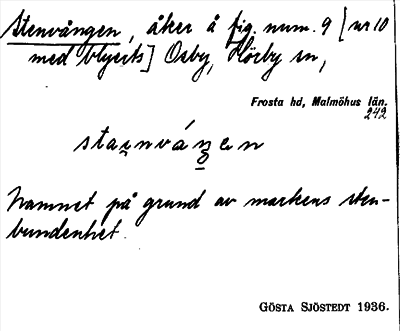 Stenvången, åker å fig. num. 9 [nr 10
med blyerts] Osby, Hörby sn,
Frosta hd, Malmöhus län.
242
Namnet på grund av markens sten-
bundenhet.
GÖSTA SJÖSTEDT 1936.